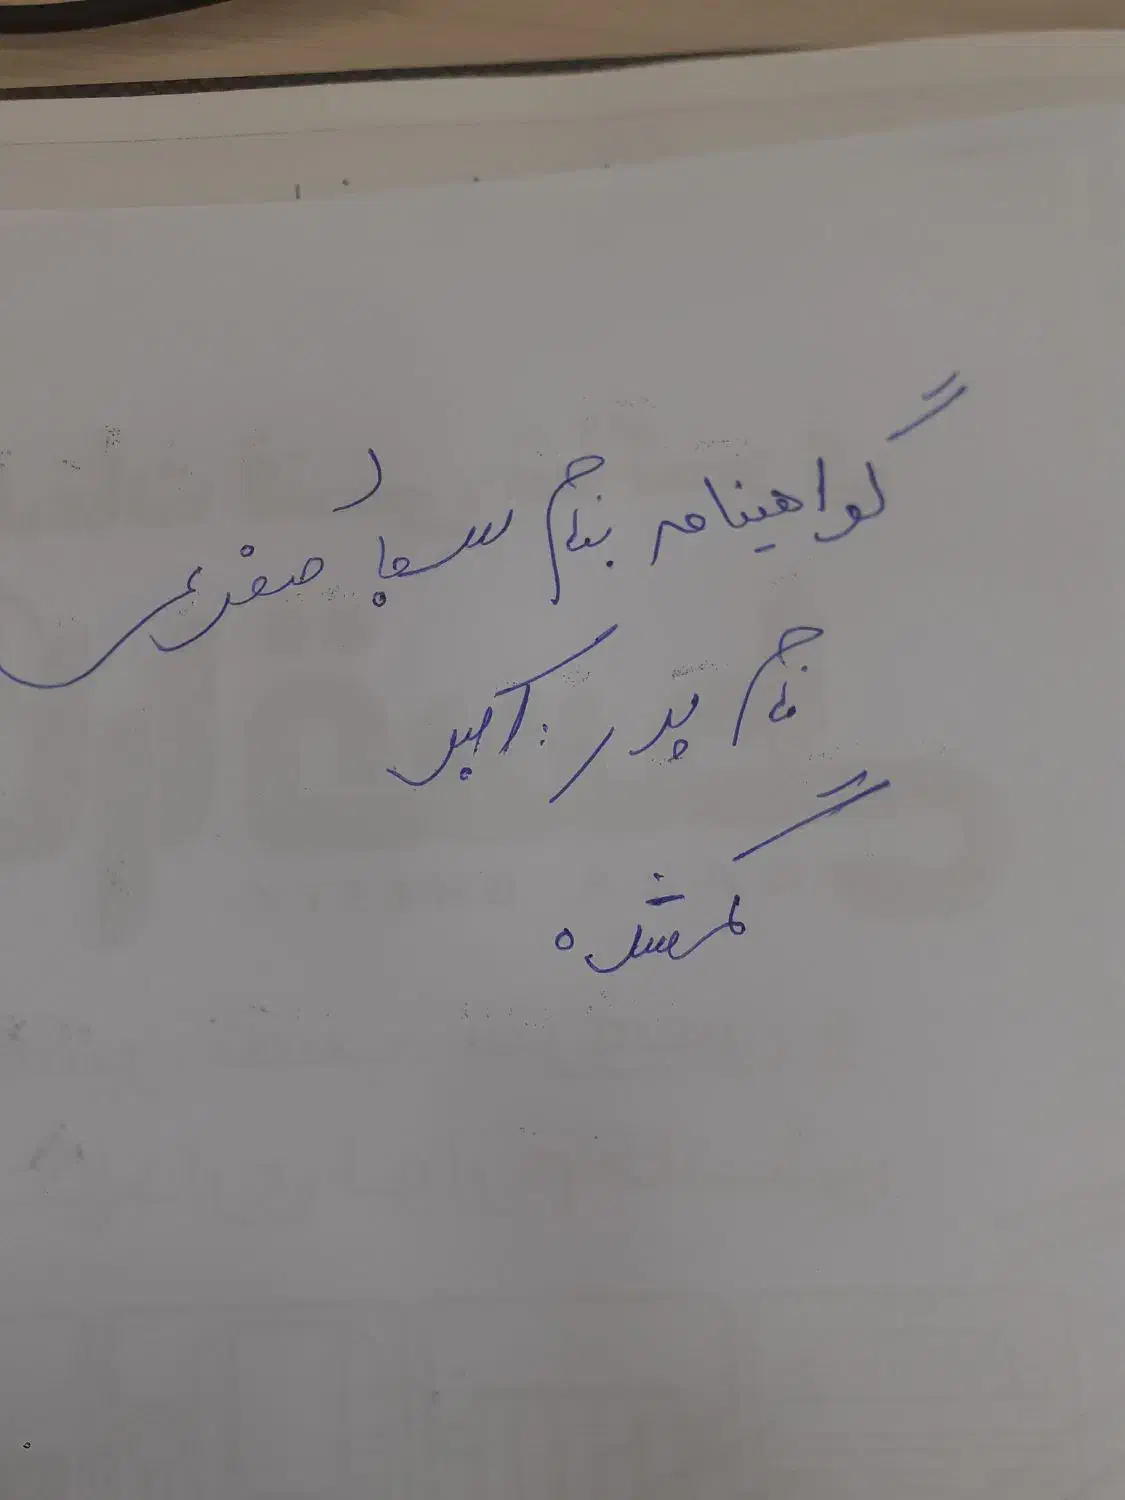 گواهینامه بنام سجاد صفری
نام پدر : اکبر
گمشده